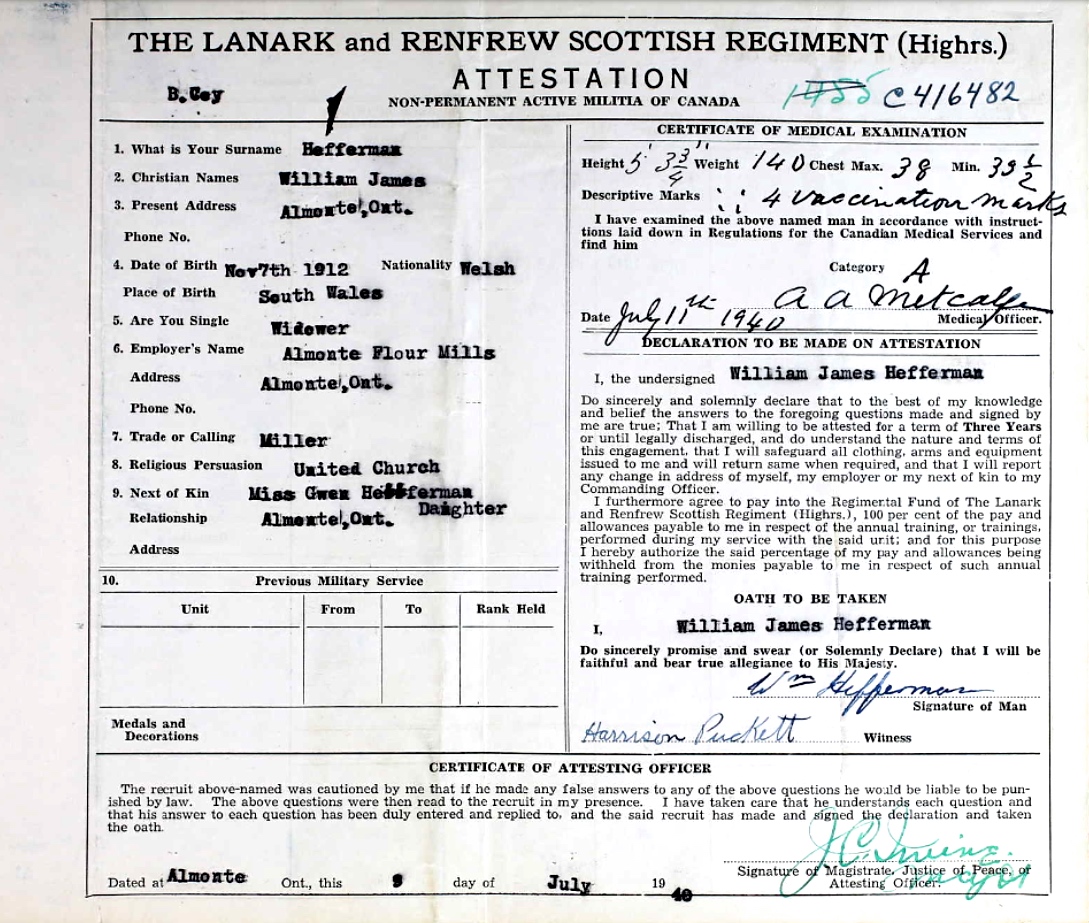 THE LANARK and RENFREW SCOTTISH REGIMENT (Highrs.)
ATTESTATION
B.Coy
NON-PERMANENT ACTIVE MILITIA OF CANADA
1455 C416482
1. What is Your Surname Hefferman
2. Christian Names William James
3. Present Address Almonte,Ont.
Phone No.
4. Date of Birth Nov7th 1912 Nationality Welsh
Place of Birth South Wales
5. Are You Single Widower
6. Employer's Name Almonte Flour Mills
Address Almonte,Ont.
Phone No.
7. Trade or Calling Miller
8. Religious Persuasion United Church
9. Next of Kin Miss Gwen Hefferman
Relationship Almonte,Ont. Daughter
Address
10. Previous Military Service
Unit From To Rank Held
Medals and
Decorations
CERTIFICATE OF MEDICAL EXAMINATION
Height 5' 3 3/4" Weight 140 Chest Max. 38 Min. 35 1/2
Descriptive Marks 4 vaccination marks
I have examined the above named man in accordance with instruct-
tions laid down in Regulations for the Canadian Medical Services and
find him
Category A
A A Metcalfe
Date July 11th 1940 Medical Officer.
DECLARATION TO BE MADE ON ATTESTATION
I, the undersigned William James Hefferman
Do sincerely and solemnly declare that to the best of my knowledge
and belief the answers to the foregoing questions made and signed by
me are true; That I am willing to be attested for a term of Three Years
or until legally discharged, and do understand the nature and terms of
this engagement, that I will safeguard all clothing, arms and equipment
issued to me and will return same when required, and that I will report
any change in address of myself, my employer or my next of kin to my
Commanding Officer.
I furthermore agree to pay into the Regimental Fund of The Lanark
and Renfrew Scottish Regiment (Highrs.), 100 per cent of the pay and
allowances payable to me in respect of the annual training, or trainings,
performed during my service with the said unit; and for this purpose
I hereby authorize the said percentage of my pay and allowances being
withheld from the monies payable to me in respect of such annual
training performed.
OATH TO BE TAKEN
I, William James Hefferman
Do sincerely promise and swear (or Solemnly Declare) that I will be
faithful and bear true allegiance to His Majesty.
Wm Hefferman
Signature of Man
Harrison Puckett Witness
CERTIFICATE OF ATTESTING OFFICER
The recruit above-named was cautioned by me that if he made any false answers to any of the above questions he would be liable to pun-
ished by law. The above questions were then read to the recruit in my presence. I have taken care that he understands each question and
that his answer to each question has been duly entered and replied to, and the said recruit has made and signed the declaration and taken
the oath.
J.C. Irvine
Signature of Magistrate, Justice of Peace, or
Attesting Officer.
Dated at Almonte Ont., this 9 day of July 19 40